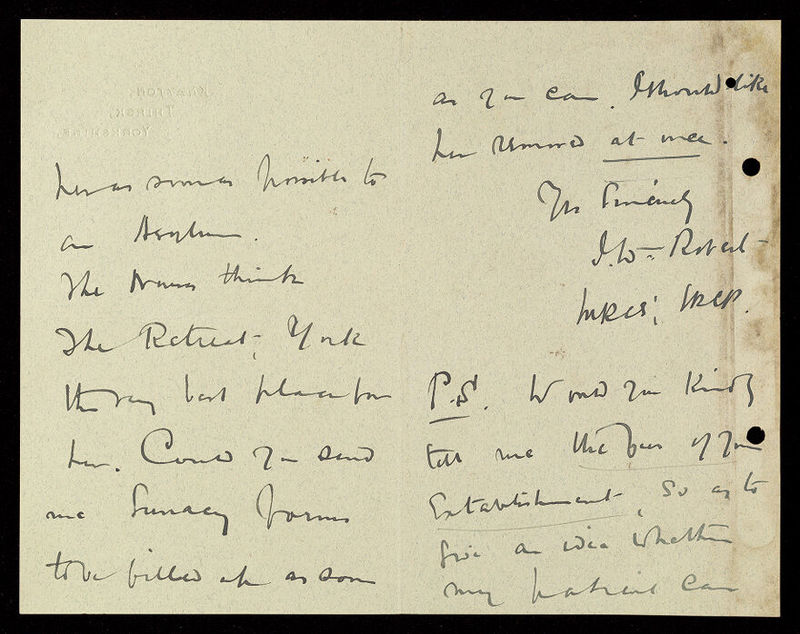 her as soon as possible to
an Asylum.
The Nurses think
The Retreat, York
the very best place for
her. Could you send
me Lunacy forms
to be filled up as soon
as you can. I should like
her removed at once.
Yrs Sincerely
Robert
MRCS, LRCP.
P.S. Would you Kindly
tell me the fees of your
Establishment, so as to
give an idea whether
my patient can